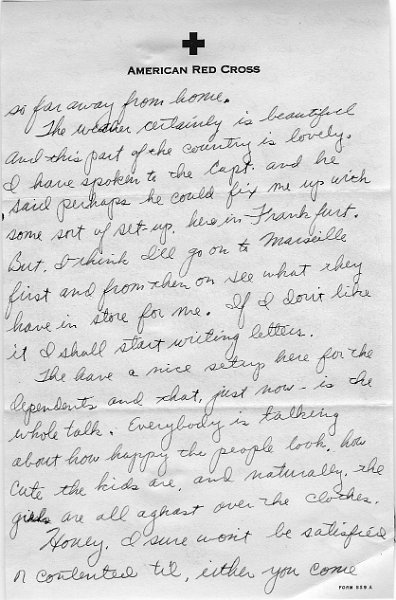 American Red Cross
so far away from home.
The weather certainly is beautiful
and this part of the country is lovely.
I have spoken to the Capt. and he
said perhaps he could fix me up with
some sort of set-up, here in Frankfurt.
But, I think I'll go on to Marseille
first and from then on see what they
have in store for me. If I don't like
it I shall start writing letters.
The have a nice setup here for the
dependents and that, just now - is the
whole talk. Everybody is talking
about how happy the people look, how
cute the kids are, and naturally, the
girls are all aghast over the clothes.
Honey, I sure won't be satisfied
or contented til, either you come
FORM 539 A